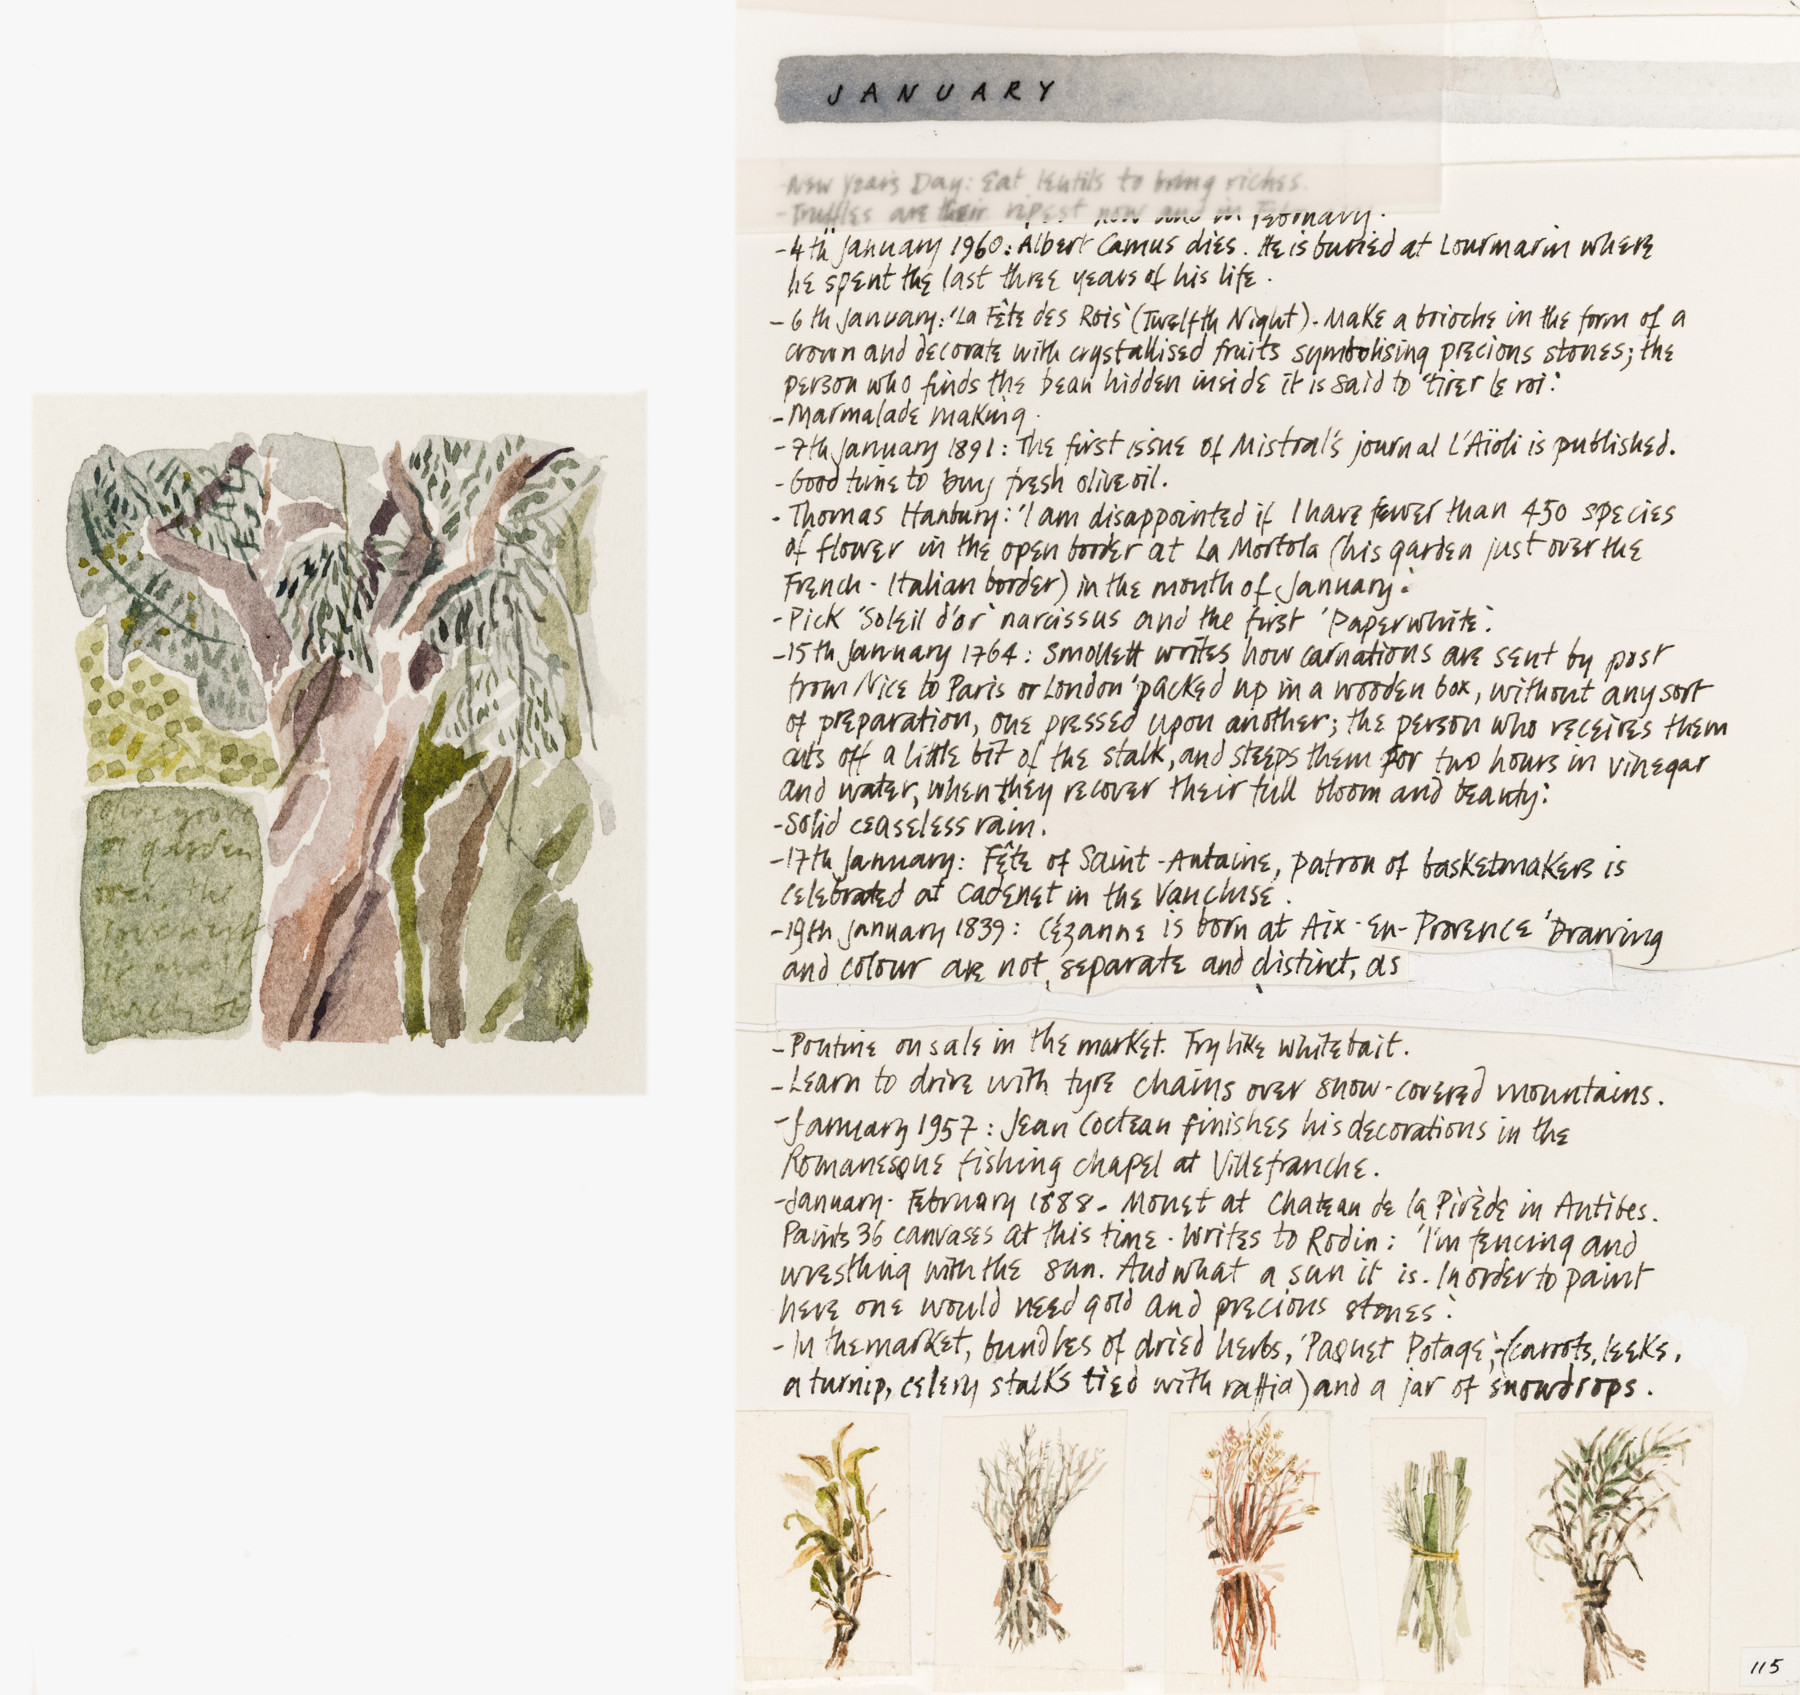 JANUARY
- New Years Day: Eat lentils to bring riches.
- Truffles are their ripest now and in February.
- 4th January 1960: Albert Camus dies. He is buried at Lourmarin where
he spent the last three years of his life.
- 6th January: 'La Fête des Rois' (Twelfth Night). Make a brioche in the form of a
crown and decorate with crystallised fruits symbolising precious stones; the
person who finds the bean hidden inside it is said to 'tirer le roi'.
- Marmalade making.
- 7th January 1891: The first issue of Mistral's journal L'Aïoli is published.
- Good time to buy fresh olive oil.
- Thomas Hanbury: 'I am disappointed if I have fewer than 450 species
of flower in the open border at La Mortola (his garden just over the
French - Italian border) in the month of January'.
- Pick 'Soleil d'or' narcissus and the first 'Paperwhite'.
- 15th January 1764: Smollett writes how carnations are sent by post
from Nice to Paris or London 'packed up in a wooden box, without any sort
of preparation, one pressed upon another; the person who receives them
cuts off a little bit of the stalk, and steeps them for two hours in vinegar
and water, when they recover their full bloom and beauty'.
- Solid ceaseless rain.
- 17th January: Fête of Saint-Antoine, patron of basketmakers is
celebrated at Cadenet in the Vaucluse.
- 19th January 1839: Cézanne is born at Aix-en-Provence 'Drawing
and colour are not separate and distinct, as
- Poutine on sale in the market. Fry like whitebait.
- Learn to drive with tyre chains over snow-covered mountains.
- January 1957: Jean Cocteau finishes his decorations in the
Romanesque fishing chapel at Villefranche.
- January - February 1888 - Monet at Chateau de la Pinède in Antibes.
Paints 36 canvases at this time. Writes to Rodin: 'I'm fencing and
wrestling with the sun. And what a sun it is. In order to paint
here one would need gold and precious stones'.
- In the market, bundles of dried herbs, 'Paquet Potage', (carrots, leeks,
a turnip, celery stalks tied with raffia) and a jar of snowdrops.
115
olive grove
or garden
the
loveliest